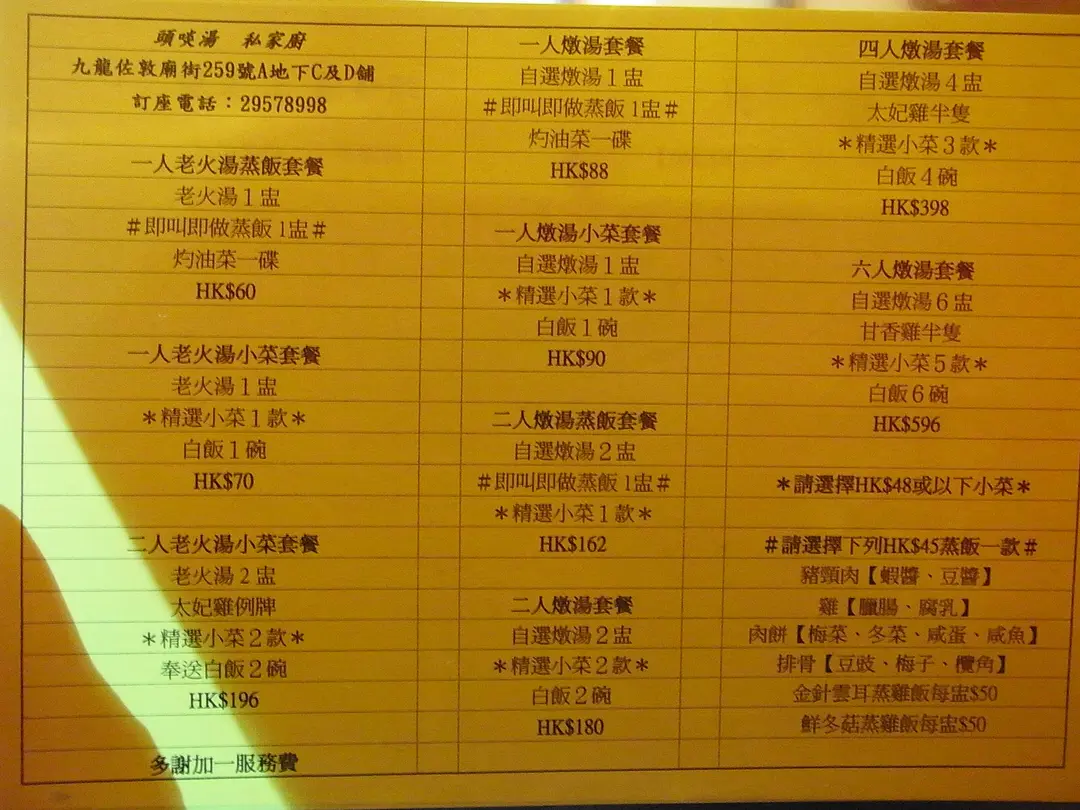 頭啖湯　私家廚
九龍佐敦廟街259號A地下C及D舖
訂座電話：29578998
一人老火湯蒸飯套餐
老火湯１盅
＃即叫即做蒸飯 1盅＃
灼油菜一碟
HK$60
一人老火湯小菜套餐
老火湯１盅
＊精選小菜１款＊
白飯１碗
HK$70
二人老火湯小菜套餐
老火湯２盅
太妃雞例牌
＊精選小菜２款＊
奉送白飯２碗
HK$196
多謝加一服務費
一人燉湯套餐
自選燉湯１盅
＃即叫即做蒸飯 1盅＃
灼油菜一碟
HK$88
一人燉湯小菜套餐
自選燉湯１盅
＊精選小菜１款＊
白飯１碗
HK$90
二人燉湯蒸飯套餐
自選燉湯２盅
＃即叫即做蒸飯 1盅＃
＊精選小菜１款＊
HK$162
二人燉湯套餐
自選燉湯２盅
＊精選小菜２款＊
白飯２碗
HK$180
四人燉湯套餐
自選燉湯４盅
太妃雞半隻
＊精選小菜３款＊
白飯４碗
HK$398
六人燉湯套餐
自選燉湯６盅
甘香雞半隻
＊精選小菜５款＊
白飯６碗
HK$596
＊請選擇HK$48或以下小菜＊
＃請選擇下列HK$45蒸飯一款＃
豬頸肉【蝦醬、豆醬】
雞【臘腸、腐乳】
肉餅【梅菜、冬菜、咸蛋、咸魚】
排骨【豆豉、梅子、欖角】
金針雲耳蒸雞飯每盅$50
鮮冬菇蒸雞飯每盅$50